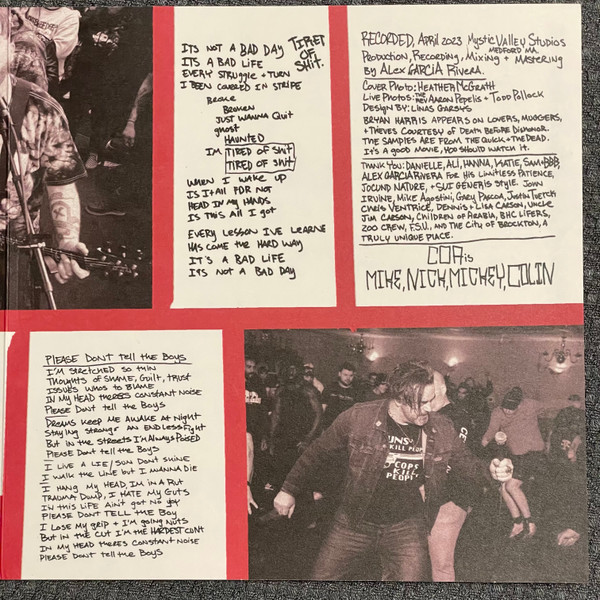 TIRET OF SHIT.
ITS NOT A BAD DAY
ITS A BAD LIFE
EVERY STRUGGLE + TURN
I BEEN COVERED IN STRIPE
BROKE
BROKEN
JUST WANNA QUIT
ghost
HAUNTED
I'M TIRED OF SHIT
TIRED OF SHIT
WHEN I WAKE UP
IS IT ALL FOR NOT
HEAD IN MY HANDS
IS THIS ALL I GOT
EVERY LESSON I'VE LEARNE
HAS COME THE HARD WAY
IT'S A BAD LIFE
ITS NOT A BAD DAY
RECORDED, APRIL 2023 MYSTIC VALLEY STUDIOS
MEDFORD MA.
PRODUCTION, RECORDING, MIXING + MASTERING
BY ALEX GARCIA RIVERA.
COVER PHOTO: HEATHER McGRATH
LIVE PHOTOS: THE REV AARON PEPELIS + TODD POLLOCK
DESIGN BY: LINAS GARSYS
BRYAN HARRIS APPEARS ON LOVERS, MUGGERS,
+ THIEVES COURTESY OF DEATH BEFORE DISHONOR.
THE SAMPLES ARE FROM THE QUICK + THE DEAD.
IT'S A GOOD MOVIE, YOU SHOULD WATCH IT.
THANK YOU: DANIELLE, ALI, HANNA, KATIE, SAM + BBB,
ALEX GARCIA RIVERA FOR HIS LIMITLESS PATIENCE,
JOCUND NATURE, + SUI GENERIS STYLE. JOHN
IRVINE, MIKE AGOSTINI, GARY PASCOA, JUSTIN TVETCH
CHRIS VENTRICE, DENNIS + LISA CARSON, UNCLE
JIM CARSON, CHILDREN OF ARABIA, BHC LIFERS,
ZOO CREW, F.S.U., AND THE CITY OF BROCKTON, A
TRULY UNIQUE PLACE.
COA is
MIKE, NICK, MICKEY, COLIN
PLEASE DONT TELL THE BOYS
I'M STRETCHED SO THIN
THOUGHTS OF SHAME, GUILT, TRUST
ISSUES WHOS TO BLAME
IN MY HEAD THERES CONSTANT NOISE
PLEASE DONT TELL THE BOYS
DREAMS KEEP ME AWAKE AT NIGHT
STAYING STRONGS AN ENDLESS FIGHT
BUT IN THE STREETS I'M ALWAYS POISED
PLEASE DONT TELL THE BOYS
I LIVE A LIE/SUN DONT SHINE
I WALK THE LINE BUT I WANNA DIE
I HANG MY HEAD, IM IN A RUT
TRAUMA DUMP, I HATE MY GUTS
IN THIS LIFE AIN'T GOT NO JOY
PLEASE DONT TELL THE BOY
I LOSE MY GRIP + I'M GOING NUTS
BUT IN THE CUT I'M THE HARDEST CUNT
IN MY HEAD THERES CONSTANT NOISE
PLEASE DONT TELL THE BOYS
GUNS
KILL PEOP
COPS
KILL
PEOPL